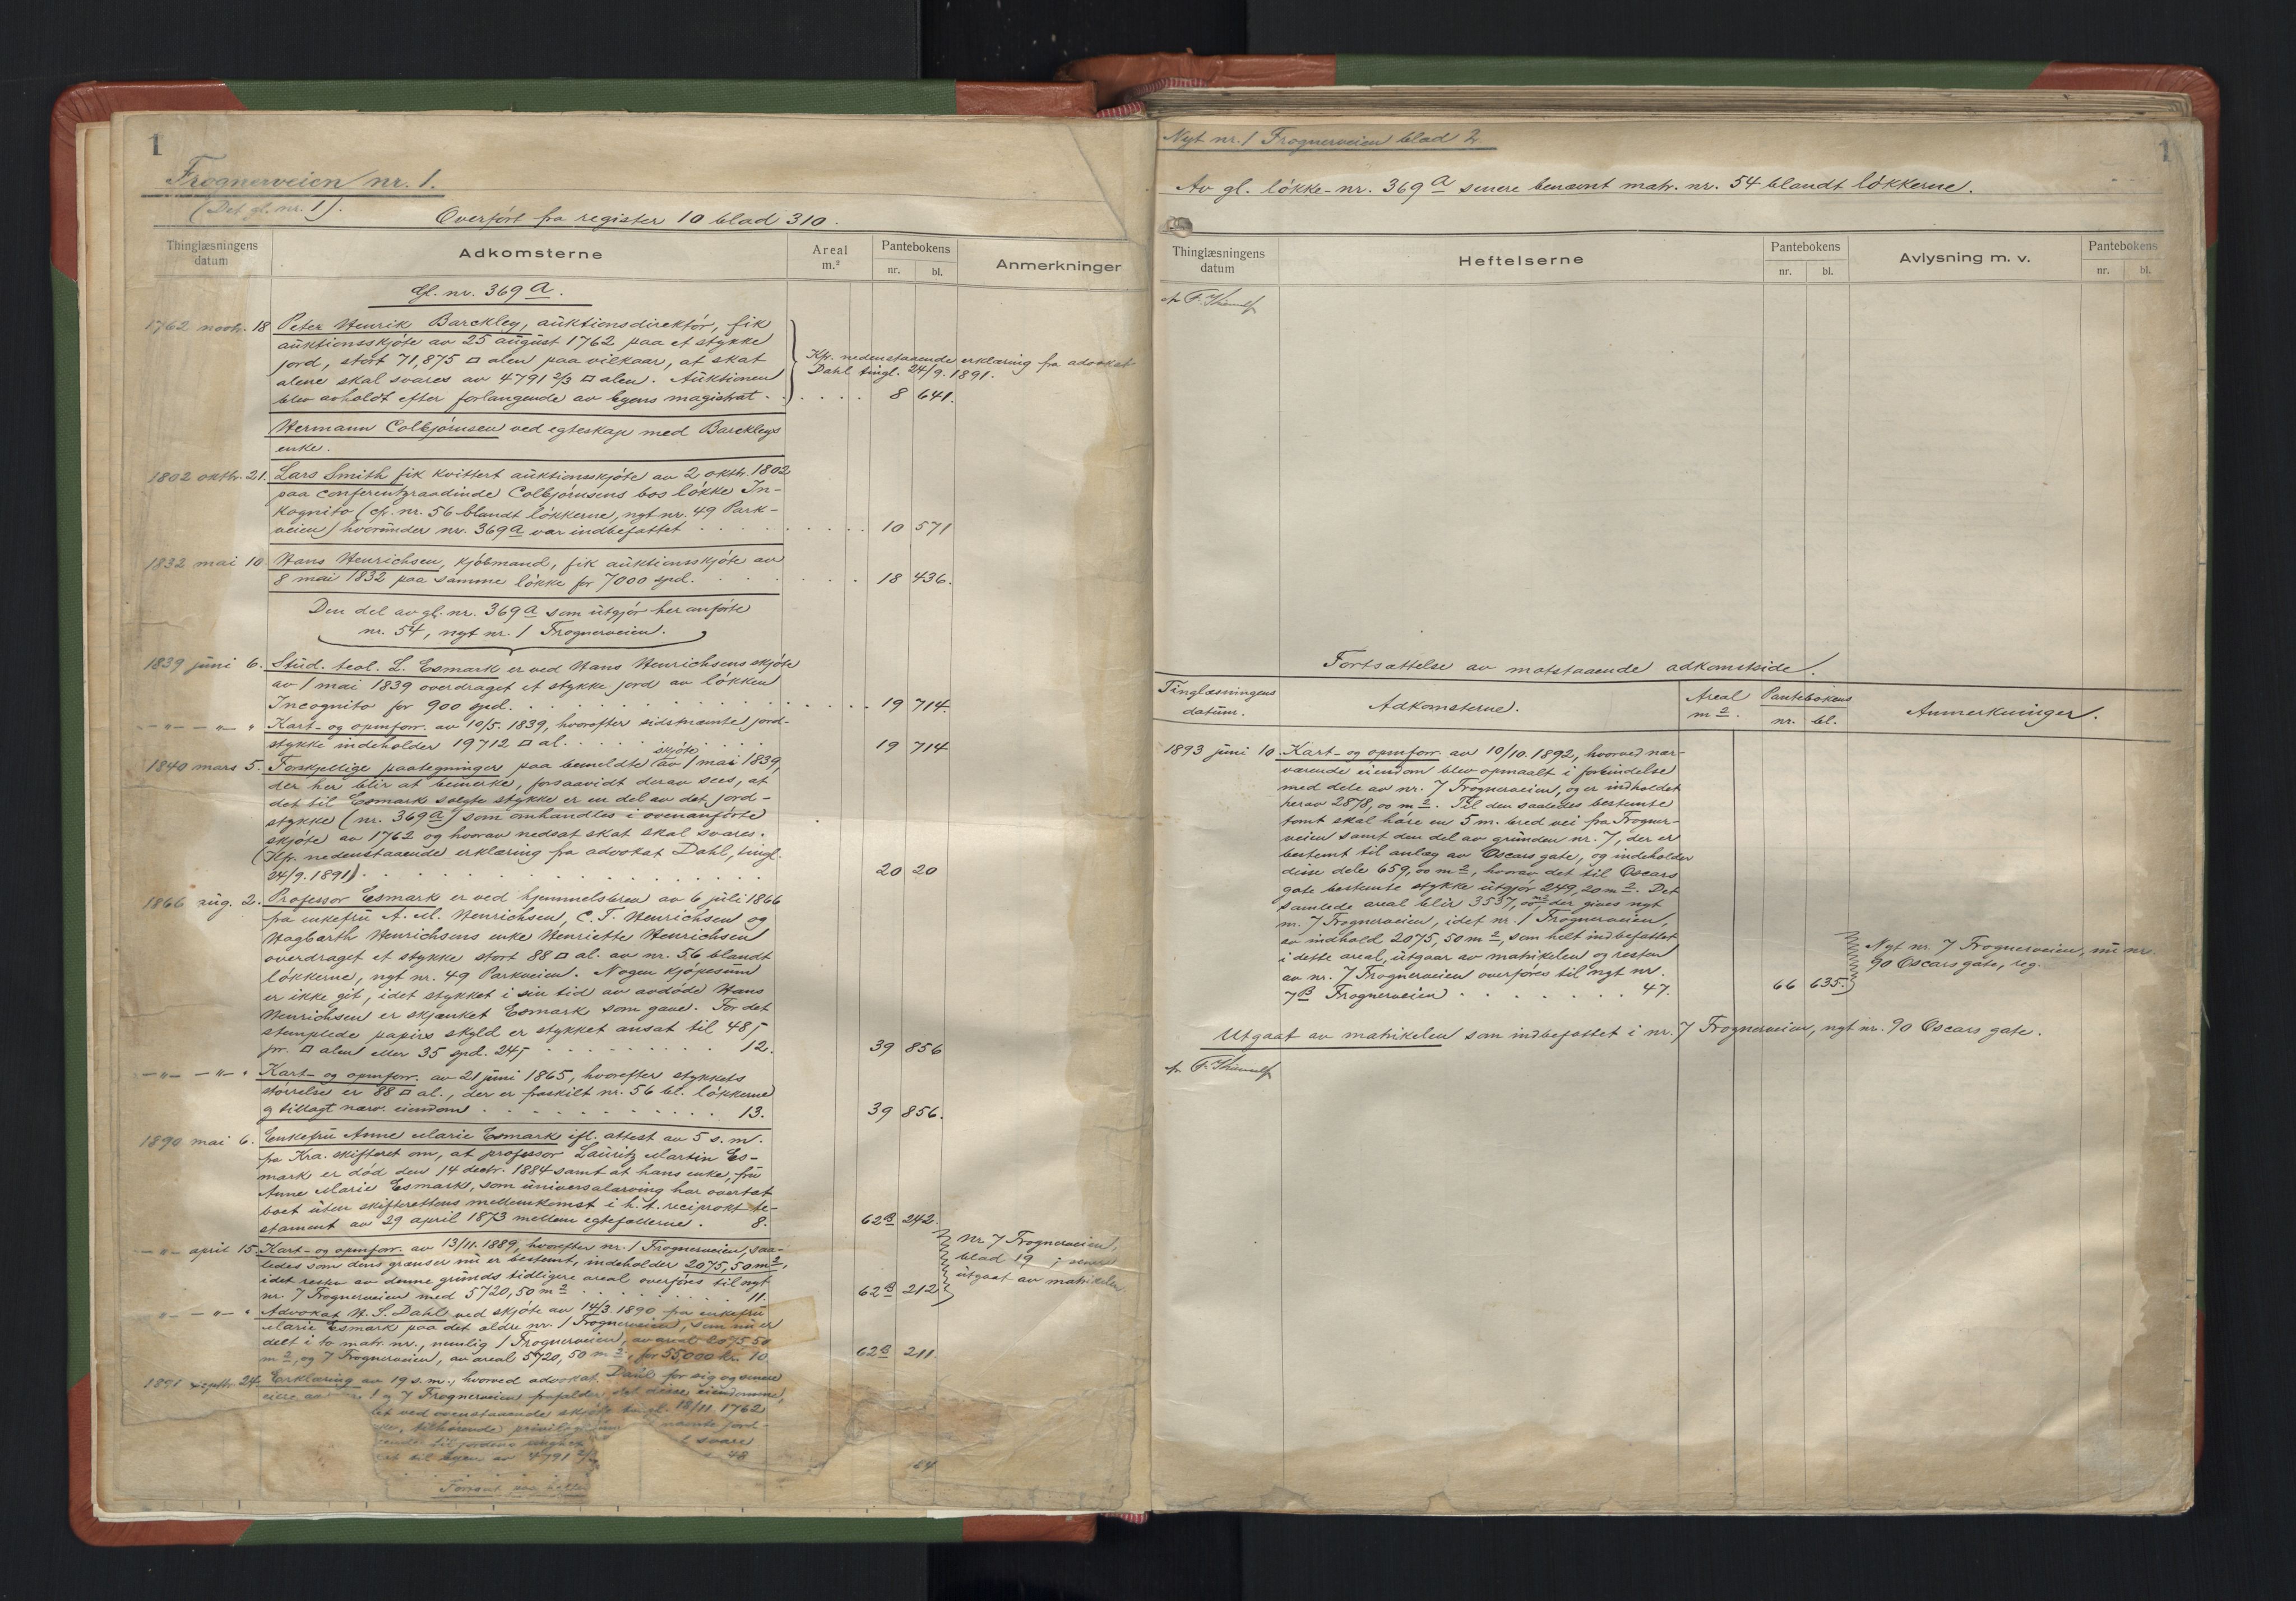 1
Frognerveien nr. 1.
(Det gl. nr. 1).
Overført fra register 10 blad 310.
Thinglæsningens datum
Adkomsterne
Areal m.²
Pantebokens
nr. bl.
Anmerkninger
Gl. nr. 369 a.
1762 novbr. 18 Peter Henrik Barckley, auktionsdirektør, fik
auktionsskjøte av 25 august 1762 paa et stykke
jord, stort 71,875 □ alen paa vilkaar, at skat
alene skal svares av 4791 2/3 □ alen. Auktionen
blev avholdt efter forlangende av byens magistrat . . . . . 8 641.
Kfr. nedenstaaende erklæring fra advokat
Dahl tingl. 24/9. 1891.
Hermann Colbjørnsen ved egteskap med Barckleys
enke.
1802 oktbr. 21. Lars Smith fik kvittert auktionsskjøte av 2 oktbr. 1802
paa conferentsraadinde Colbjørnsens bos løkke In-
kognito (cfr. nr. 56 blandt løkkerne, nyt nr. 49 Park-
veien) hvorunder nr. 369 a var indbefattet . . . . 10 571
1832 mai 10 Hans Henrichsen, kjøbmand, fik auktionsskjøte av
8 mai 1832 paa samme løkke for 7000 spd. . . . . 18 436.
Den del av gl. nr. 369 a som utgjør her anførte
nr. 54, nyt nr. 1 Frognerveien.
1839 juni 6. Stud. teol. L. Esmark er ved Hans Henrichsens skjøte
av 1 mai 1839 overdraget et stykke jord av løkken
Incognito for 900 spd. . . . . 19 714.
-"- -"- " Kart- og opmforr. av 10/5. 1839, hvorefter sidstnævnte jord-
stykke indeholder 19712 □ al. . . . . 19 714
1840 mars 5. Forskjellige paategninger paa bemeldte skjøte av 1 mai 1839,
der her blir at bemerke, forsaavidt derav sees, at
det til Esmark solgte stykke er en del av det jord-
stykke (nr. 369 a) som omhandles i ovenanførte
skjøte av 1762 og hvorav nedsat skat skal svares.
(Kfr. nedenstaaende erklæring fra advokat Dahl, tingl.
24/9. 1891) . . . . 20 20
1866 aug. 2. Professor Esmark er ved hjemmelsbrev av 6 juli 1866
fra enkefru A. M. Henrichsen, C. T. Henrichsen og
Hagbarth Henrichsens enke Henriette Henrichsen
overdraget et stykke stort 88 □ al. av nr. 56 blandt
løkkerne, nyt nr. 49 Parkveien. Nogen kjøpesum
er ikke git, idet stykket i sin tid av avdøde Hans
Henrichsen er skjænket Esmark som gave. For det
stemplede papirs skyld er stykket ansat til 48 ƒ
pr. □ alen eller 35 spd. 24 ƒ . . . . 12. 39 856
-"- -"- " Kart- og opmforr. av 21 juni 1865, hvorefter stykkets
størrelse er 88 □ al., der er fraskilt nr. 56 bl. løkkerne
og tillagt nærv. eiendom . . . . 13. 39 856.
1890 mai 6. Enkefru Anne Marie Esmark ifl. attest av 5 s. m.
fra Kra. skifteret om, at professor Lauritz Martin Es-
mark er død den 14 decbr. 1884 samt at hans enke, fru
Anne Marie Esmark, som universalarving har overtat
boet uten skifterettens mellemkomst i h. t. reciprokt te-
stament av 29 april 1873 mellem egtefællerne. 8. 62 B 242.
-"- april 15. Kart- og opmforr. av 13/11. 1889, hvorefter nr. 1 Frognerveien, saa-
ledes som dens grænser nu er bestemt, indeholder 2075,50 m²,
idet resten av denne grunds tidligere areal overføres til nyt
nr. 7 Frognerveien med 5720,50 m² . . . . 11. 62 B 212
Nr. 7 Frognerveien,
blad 19 ; senere
utgaat av matrikelen
"- -"- " Advokat H. S. Dahl ved skjøte av 14/3. 1890 fra enkefru
Marie Esmark paa det ældre nr. 1 Frognerveien, som nu er
delt i to matr. nr., nemlig 1 Frognerveien, av areal 2075,50
m², og 7 Frognerveien, av areal 5720,50 m², for 55,000 kr. 10 62 B 211.
1891 septbr. 24. Erklæring av 19 s. m., hvorved advokat Dahl for sig og senere
eiere av nr. 1 og 7 Frognerveien frafalder det disse eiendomme,
ved ovenstaaende skjøte tingl. 18/11 1762
tilhørende privilegium nævnte jord-
svare
til byen av 4791 2/3 48
64
Fortsat paa
Nyt nr. 1 Frognerveien blad 2.
1
Av gl. løkke-nr. 369 a senere benævnt matr. nr. 54 blandt løkkerne.
Thinglæsningens datum
Heftelserne
Pantebokens
nr. bl.
Avlysning m. v.
Pantebokens
nr. bl.
Fortsættelse av motstaaende adkomstside.
Tinglæsningens datum.
Adkomsterne.
Areal m².
Pantebokens
nr. bl.
Anmerkninger.
1893 juni 10 Kart- og opmforr. av 10/10. 1892, hvorved nær-
værende eiendom blev opmaalt i forbindelse
med dele av nr. 7 Frognerveien, og er indholdet
herav 2878,00 m². Til den saaledes bestemte
tomt skal høre en 5 m. bred vei fra Frogner-
veien samt den del av grunden nr. 7, der er
bestemt til anlæg av Oscars gate, og indeholder
disse dele 659,00 m², hvorav det til Oscars
gate bestemte stykke utgjør 249,20 m². Det
samlede areal blir 3537,00 m², der gives nyt
nr. 7 Frognerveien, idet nr. 1 Frognerveien,
av indhold 2075,50 m², som helt indbefattet
i dette areal, utgaar av matrikelen og resten
av nr. 7 Frognerveien overføres til nyt nr.
7 B Frognerveien . . . . 47. 66 635.
Nyt nr. 7 Frognerveien, nu nr.
90 Oscars gate, reg.
Utgaat av matrikelen som indbefattet i nr. 7 Frognerveien, nyt nr. 90 Oscars gate.